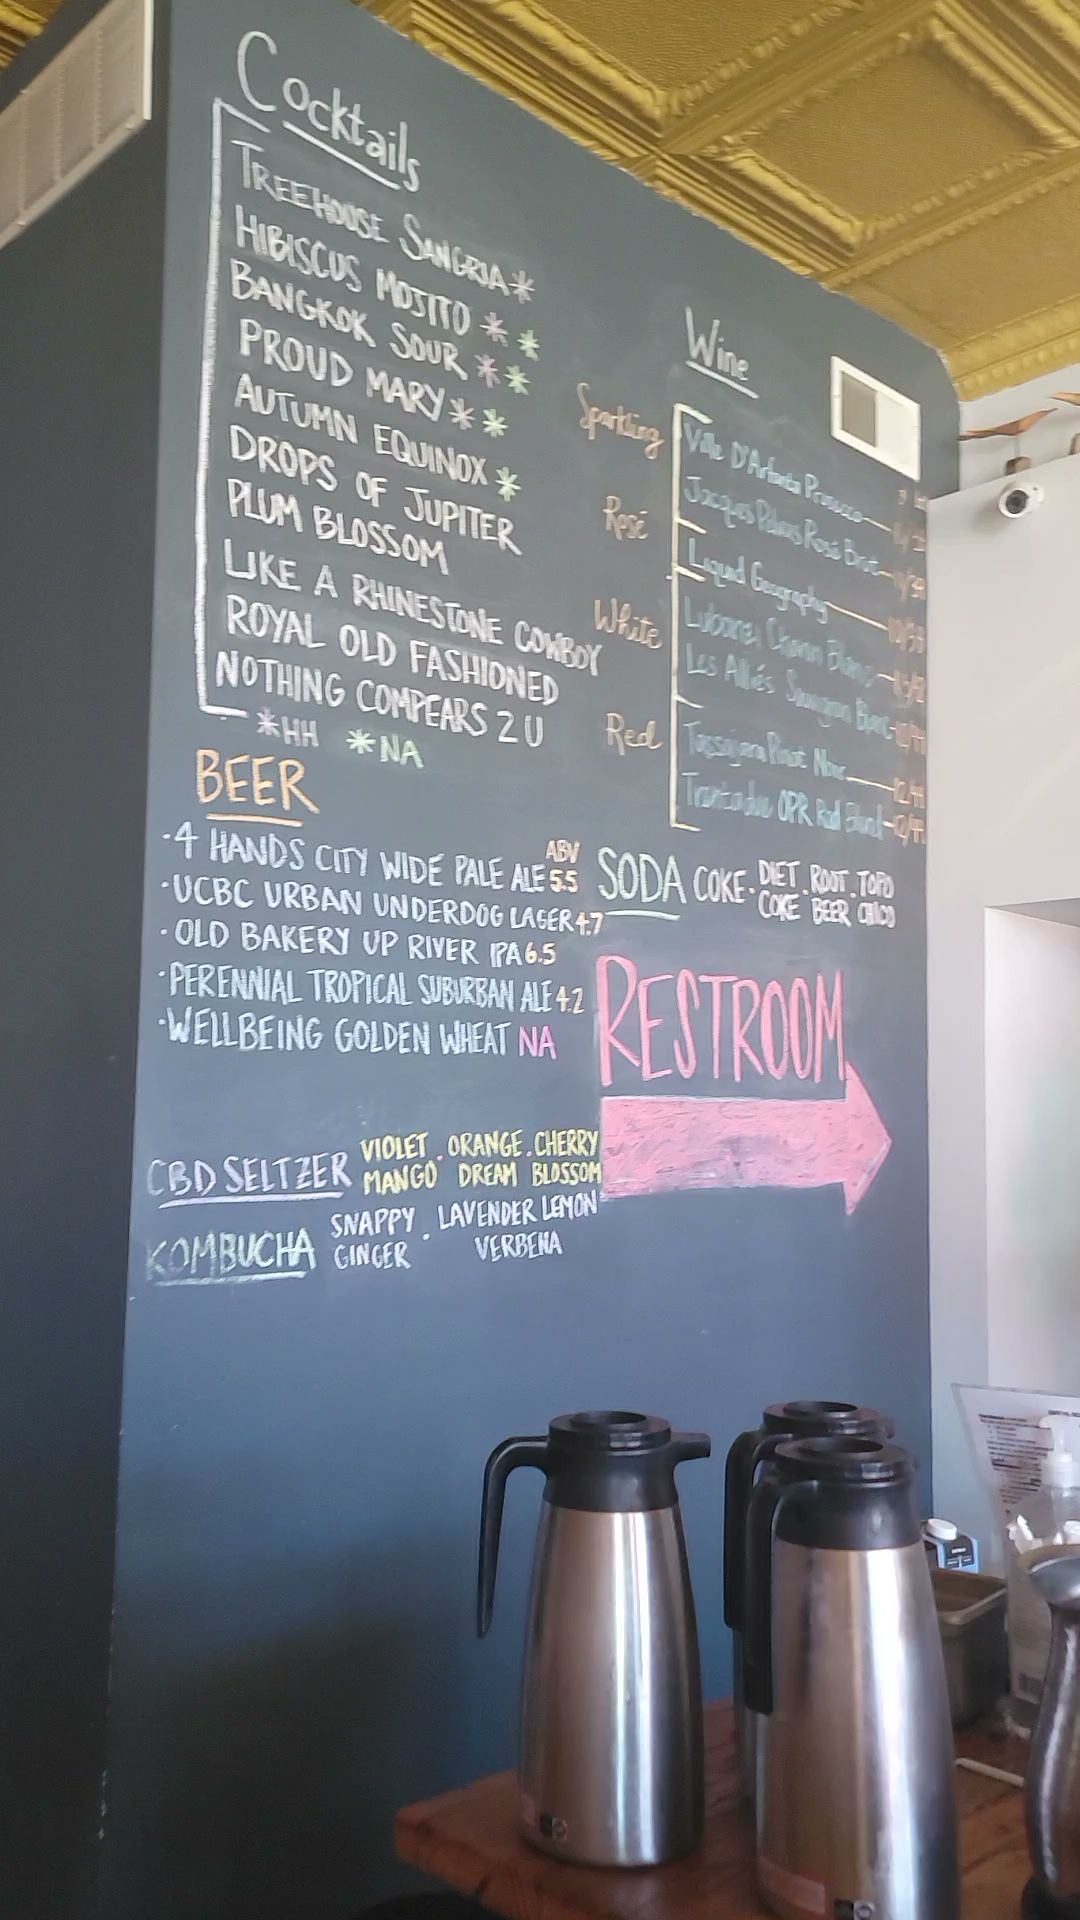 Cocktails
TREEHOUSE SANGRIA *
HIBISCUS MOJITO * *
BANGKOK SOUR * *
PROUD MARY * *
AUTUMN EQUINOX *
DROPS OF JUPITER
PLUM BLOSSOM
LIKE A RHINESTONE COWBOY
ROYAL OLD FASHIONED
NOTHING COMPEARS 2 U
*HH *NA
BEER
ABV
·4 HANDS CITY WIDE PALE ALE 5.5
·UCBC URBAN UNDERDOG LAGER 4.7
·OLD BAKERY UP RIVER IPA 6.5
·PERENNIAL TROPICAL SUBURBAN ALE 4.2
·WELLBEING GOLDEN WHEAT NA
CBD SELTZER
VIOLET . ORANGE . CHERRY
MANGO DREAM BLOSSOM
KOMBUCHA
SNAPPY . LAVENDER LEMON
GINGER VERBENA
Wine
Sparkling
Prosecco
Jacques Rosé Brut
Rosé
Liquid Geography
White
Les Alliés
Red
Pinot Noir
OPR Red Blend
SODA
COKE . DIET . ROOT . TOPO
COKE BEER CHICO
RESTROOM